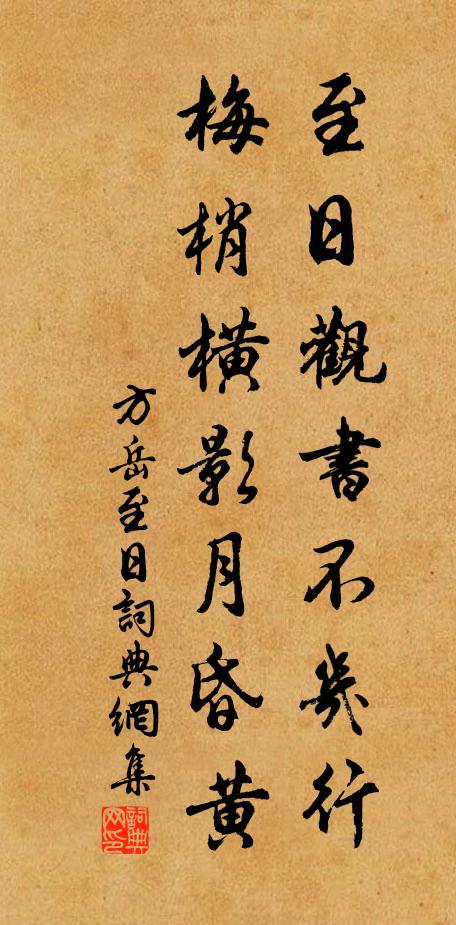 至日觀書不幾行
梅梢橫影月昏黃
方岳至日詞典網集
詞典網印